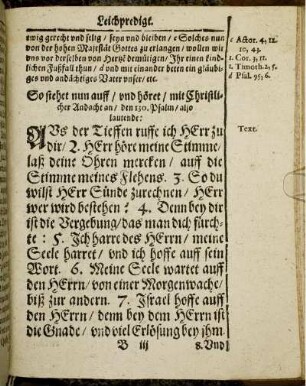 Leichpredigt.
ewig gerecht und selig / seyn und bleiben / c Solches nun
von der hohen Majestät Gottes zu erlangen / wollen wir
uns vor derselben von Hertzē demütigen / Ihr einen kind-
lichen Fußfall thun / d und mit einander beten ein gläubi-
ges und andächtiges Vater unser / etc.
c Actor. 4, 12.
10, 43.
1. Cor. 3, 11.
1. Timoth. 2, 5.
d Psal. 95, 6.
So stehet nun auff / und höret / mit Christli-
cher Andacht an / den 130. Psalm / also
lautende:
Text.
AUs der Tieffen ruffe ich HErr zu
dir / 2. HErr höre meine Stimme /
laß deine Ohren mercken / auff die
Stimme meines Flehens. 3. So du
wilst HErr Sünde zurechnen / HErr
wer wird bestehen? 4. Denn bey dir
ist die Vergebung / das man dich fürch-
te: 5. Ich harre des HErrn / meine
Seele harret / und ich hoffe auff sein
Wort. 6. Meine Seele wartet auff
den HErrn / von einer Morgenwache /
biß zur andern. 7. Israel hoffe auff
den HErrn / denn bey dem HErrn ist
die Gnade / und viel Erlösung bey jhm.
B iij
8. Und